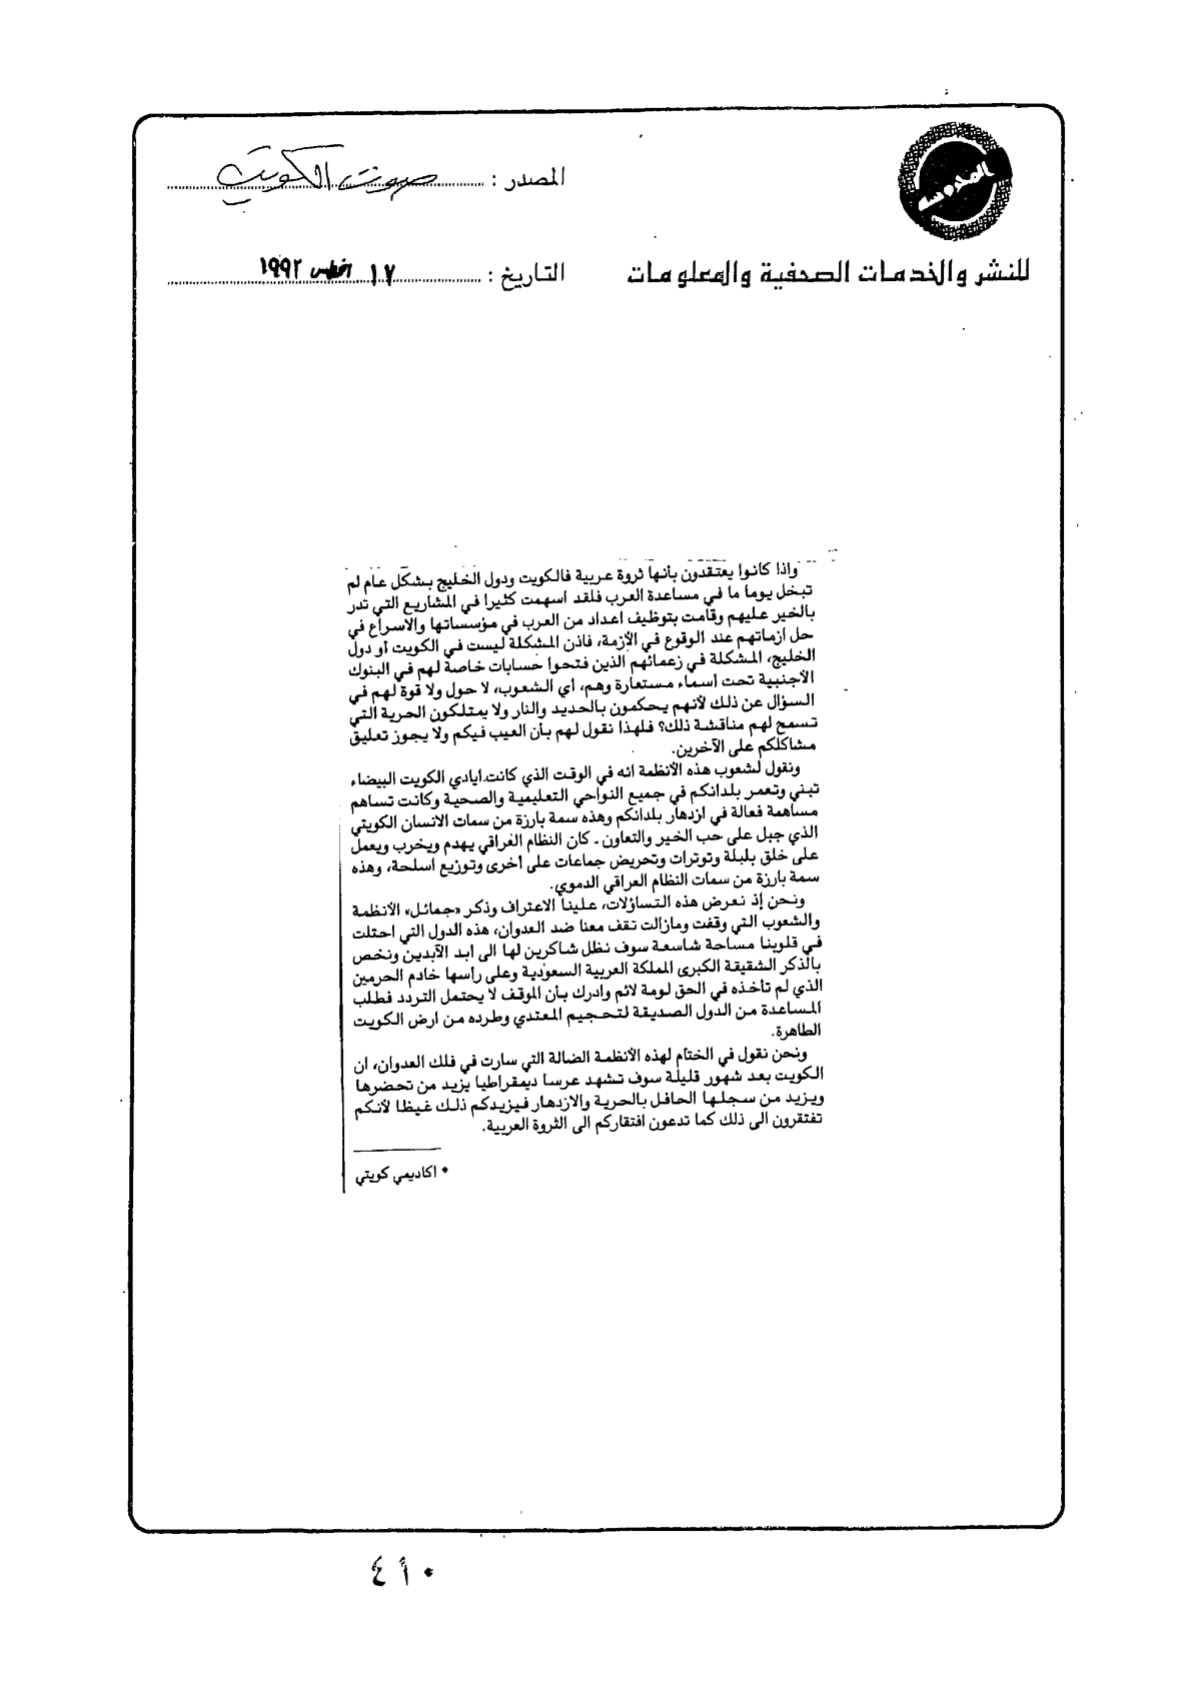 المدروسه
للنشر والخدمات الصحفية والمعلومات
المصدر : صوت الكويت
التاريخ : ١٧ اغسطس ١٩٩٢
واذا كانوا يعتقدون بأنها ثروة عربية فالكويت ودول الخليج بشكل عام لم
تبخل يوما ما في مساعدة العرب فلقد اسهمت كثيرا في المشاريع التي تدر
بالخير عليهم وقامت بتوظيف اعداد من العرب في مؤسساتها والاسراع في
حل ازماتهم عند الوقوع في الأزمة، فاذن المشكلة ليست في الكويت أو دول
الخليج، المشكلة في زعمائهم الذين فتحوا حسابات خاصة لهم في البنوك
الأجنبية تحت اسماء مستعارة وهم، أي الشعوب، لا حول ولا قوة لهم في
السؤال عن ذلك لأنهم يحكمون بالحديد والنار ولا يمتلكون الحرية التي
تسمح لهم مناقشة ذلك؟ فلهذا نقول لهم بأن العيب فيكم ولا يجوز تعليق
مشاكلكم على الآخرين.
ونقول لشعوب هذه الأنظمة انه في الوقت الذي كانت ايادي الكويت البيضاء
تبني وتعمر بلدانكم في جميع النواحي التعليمية والصحية وكانت تساهم
مساهمة فعالة في ازدهار بلدانكم وهذه سمة بارزة من سمات الانسان الكويتي
الذي جبل على حب الخير والتعاون ـ كان النظام العراقي يهدم ويخرب ويعمل
على خلق بلبلة وتوترات وتحريض جماعات على أخرى وتوزيع اسلحة، وهذه
سمة بارزة من سمات النظام العراقي الدموي.
ونحن إذ نعرض هذه التساؤلات، علينا الاعتراف وذكر «جمائل» الأنظمة
والشعوب التي وقفت ومازالت تقف معنا ضد العدوان، هذه الدول التي احتلت
في قلوبنا مساحة شاسعة سوف نظل شاكرين لها الى ابد الآبدين ونخص
بالذكر الشقيقة الكبرى المملكة العربية السعودية وعلى رأسها خادم الحرمين
الذي لم تأخذه في الحق لومة لائم وادرك بأن الموقف لا يحتمل التردد فطلب
المساعدة من الدول الصديقة لتحجيم المعتدي وطرده من ارض الكويت
الطاهرة.
ونحن نقول في الختام لهذه الأنظمة الضالة التي سارت في فلك العدوان، ان
الكويت بعد شهور قليلة سوف تشهد عرسا ديمقراطيا يزيد من تحضرها
ويزيد من سجلها الحافل بالحرية والازدهار فيزيدكم ذلك غيظا لأنكم
تفتقرون الى ذلك كما تدعون افتقاركم الى الثروة العربية.
* اكاديمي كويتي
٤١٠